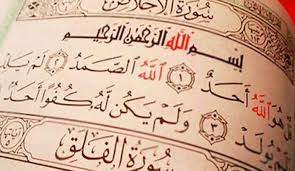 سُورَةُ الْإِخْلَاصِ
بِسْمِ اللَّهِ الرَّحْمَٰنِ الرَّحِيمِ
هُوَ اللَّهُ أَحَدٌ ١ اللَّهُ الصَّمَدُ ٢ لَمْ
يُولَدْ ٣ وَلَمْ يَكُن لَّهُ كُفُوًا أَحَدٌ
سُورَةُ الْفَلَقِ